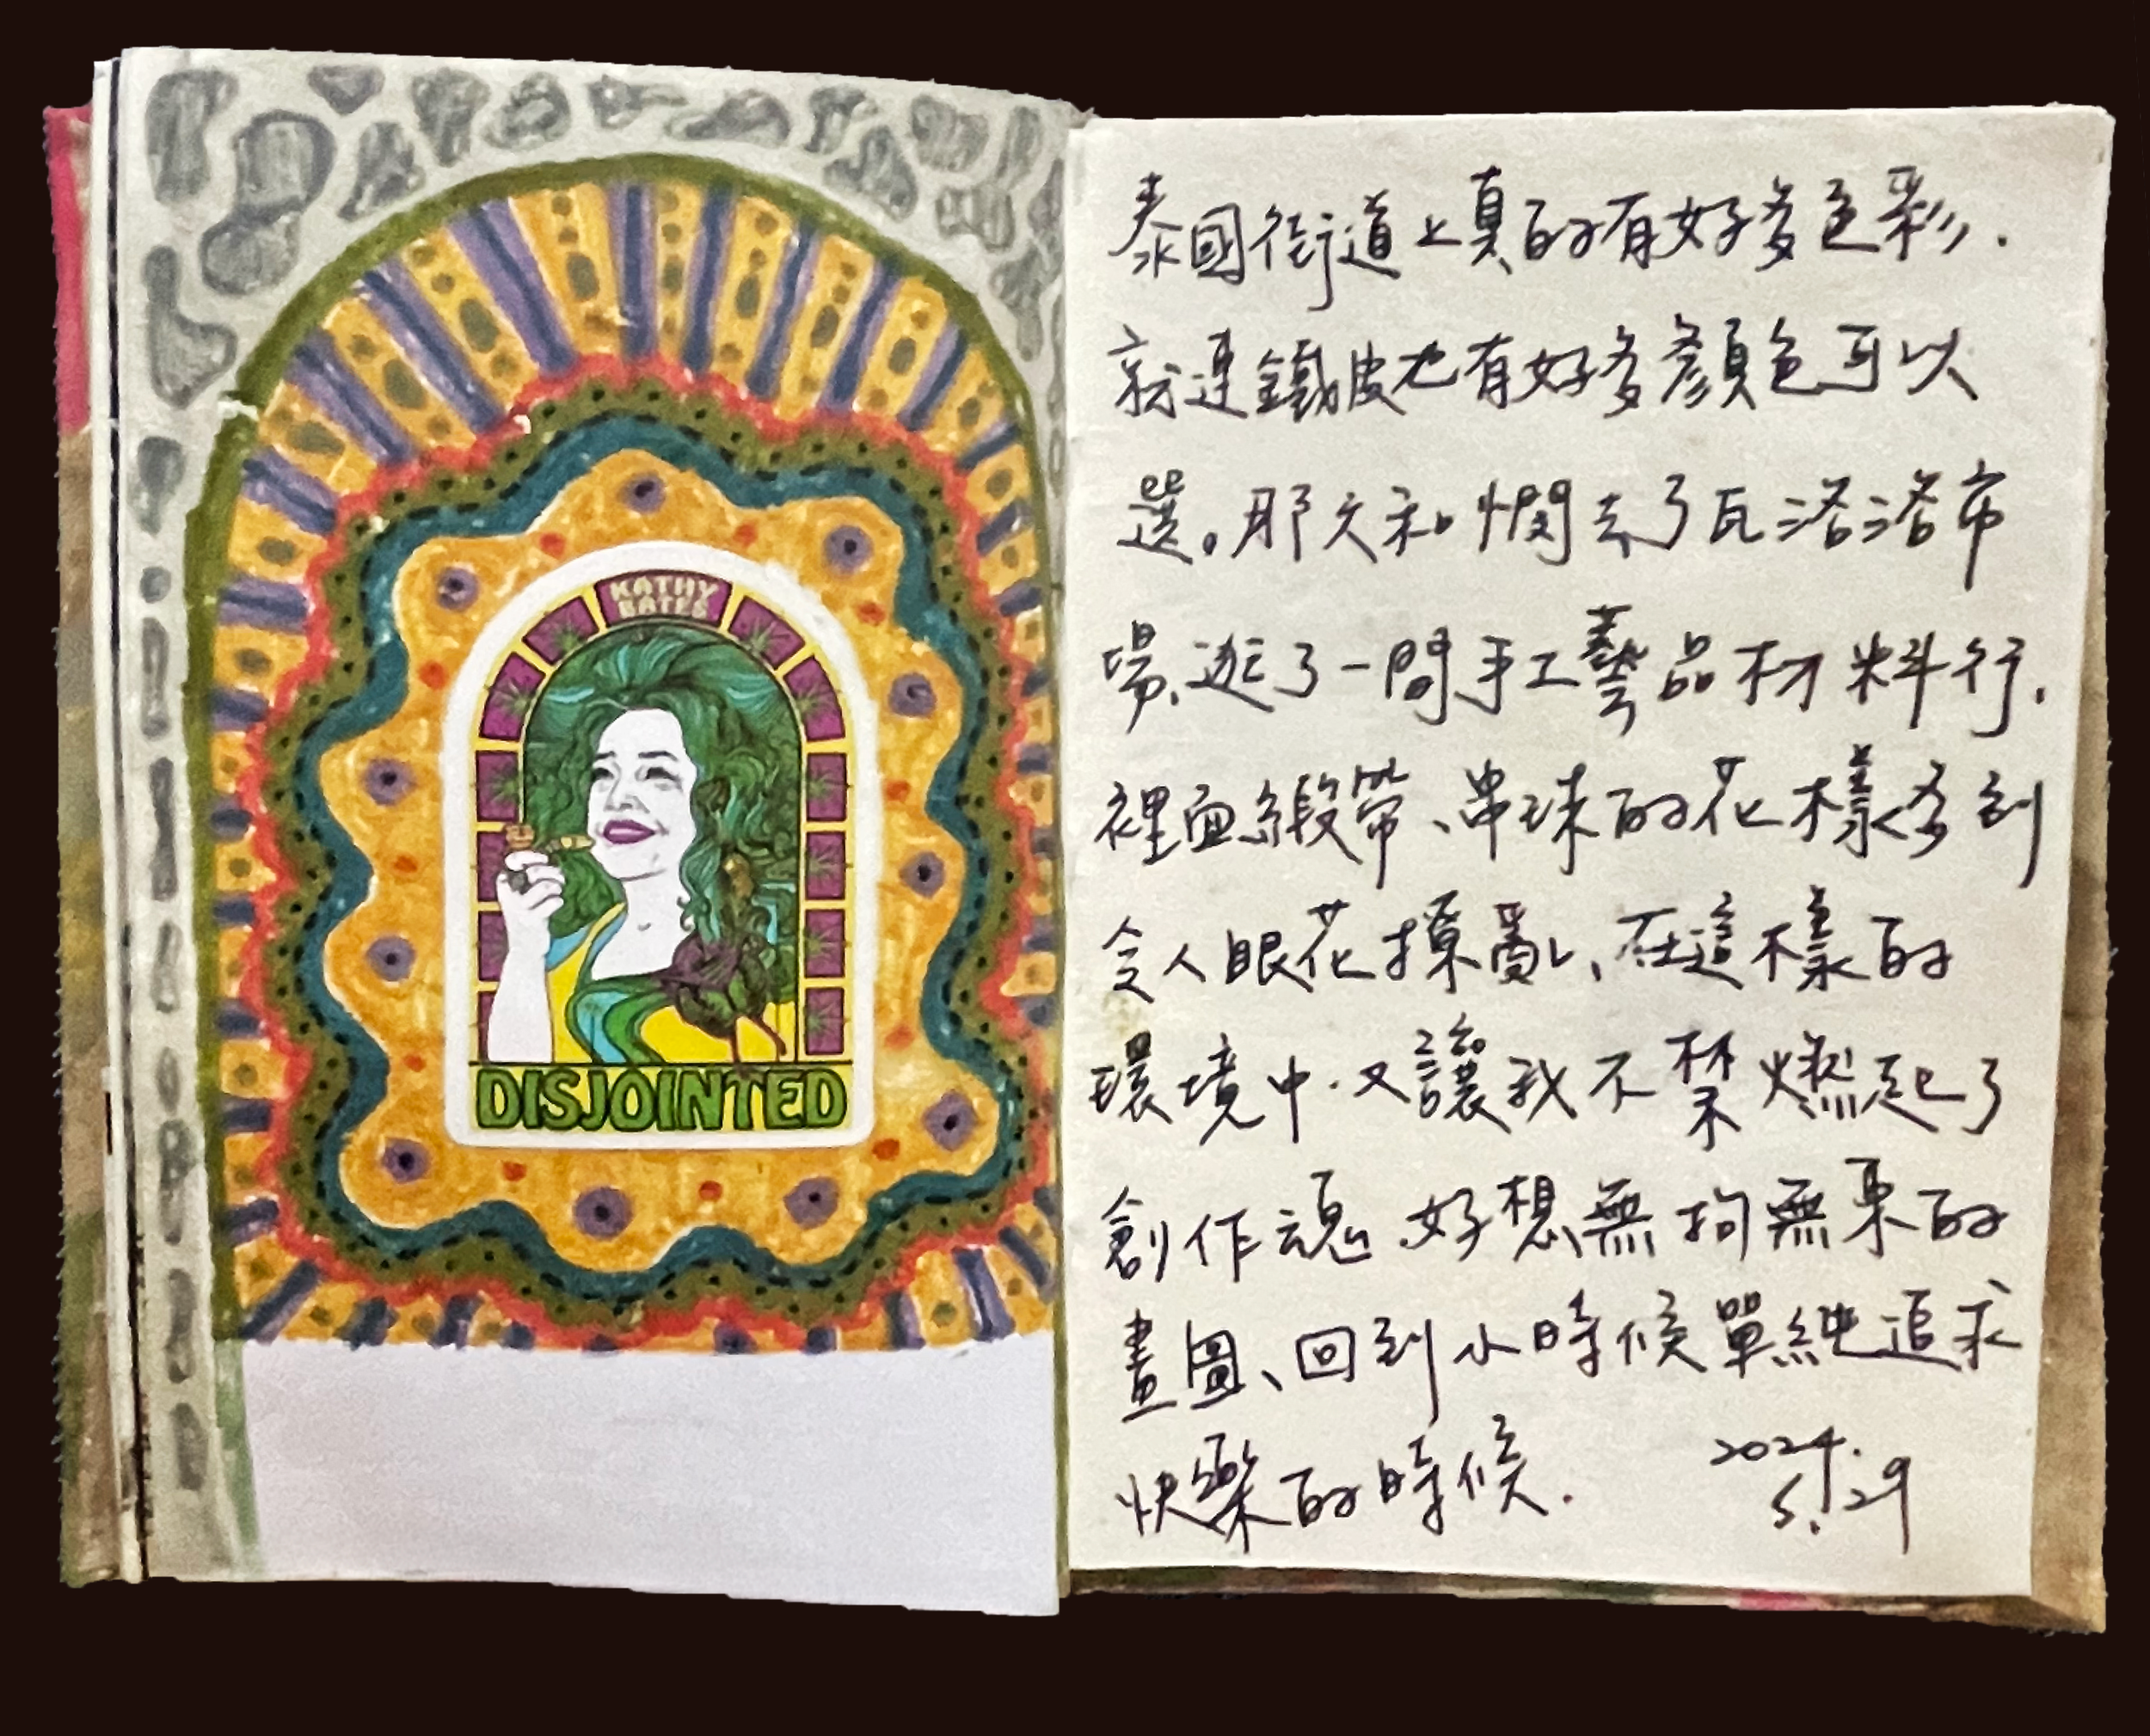 KATHY
BATES
DISJOINTED
泰國街道上真的有好多色彩.
就連鐵皮也有好多顏色可以
選。那天和憫去了瓦洛洛市
場、逛了一間手工藝品材料行.
裡面緞帶、串珠的花樣多到
令人眼花撩亂、在這樣的
環境中.又讓我不禁燃起了
創作魂.好想無拘無束的
畫圖、回到小時候單純追求
快樂的時候.
2024.
5.29